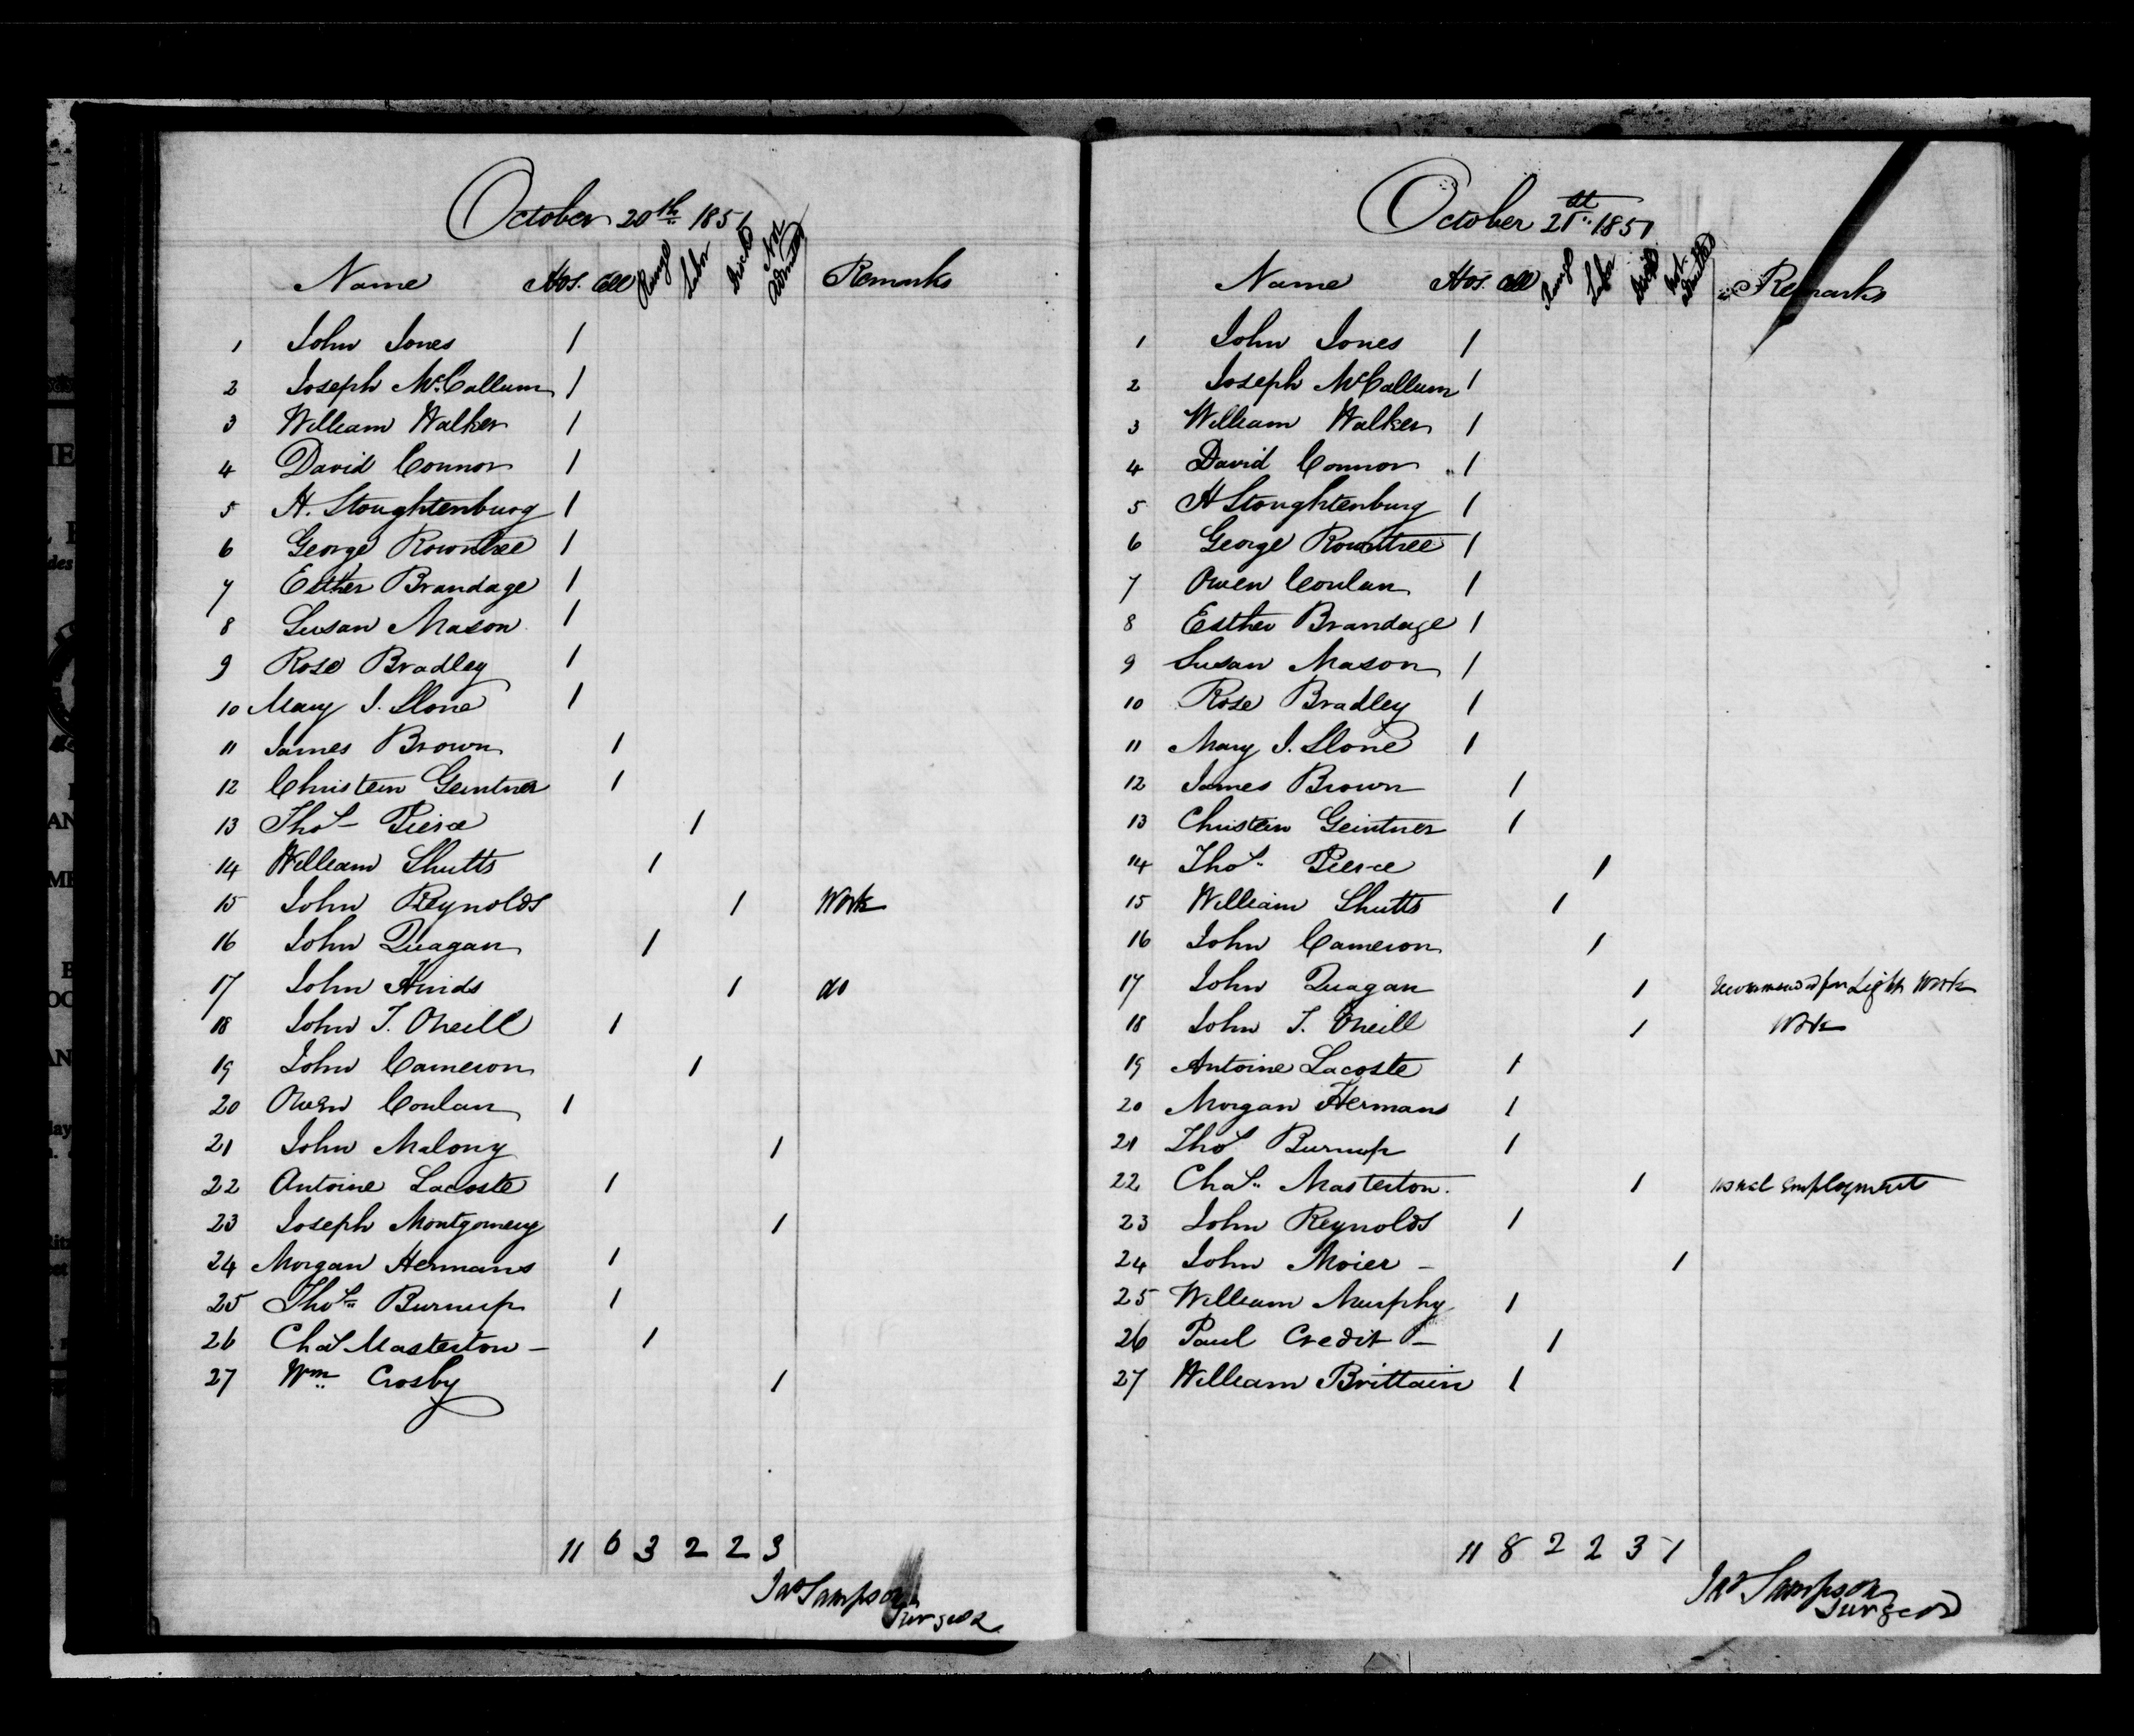 October 20th 1851
Name Hos. Cell Range Labor Disch'd Not Admitted Remarks
1 John Jones 1
2 Joseph McCallum 1
3 William Walker 1
4 David Connor 1
5 H. Stoughtenburg 1
6 George Rowntree 1
7 Esther Brandage 1
8 Susan Mason 1
9 Rose Bradley 1
10 Mary J. Slone 1
11 James Brown 1
12 Christein Geintner 1
13 Thos Pierce 1
14 William Shutts 1
15 John Reynolds 1 Work
16 John Quagan 1
17 John Hinds 1 do
18 John T. Oneill 1
19 John Cameron 1
20 Owen Conlan 1
21 John Malony 1
22 Antoine Lacoste 1
23 Joseph Montgomery 1
24 Morgan Hermans 1
25 Thos Burnup 1
26 Chas Masterton 1
27 Wm Crosby 1
11 6 3 2 2 3
Jas Sampson
Surgeon
October 21st 1851
Name Hos. Cell Range Labor Disch'd Not Admitted Remarks
1 John Jones 1
2 Joseph McCallum 1
3 William Walker 1
4 David Connor 1
5 H Stoughtenburg 1
6 George Rowntree 1
7 Owen Conlan 1
8 Esther Brandage 1
9 Susan Mason 1
10 Rose Bradley 1
11 Mary J. Slone 1
12 James Brown 1
13 Christein Geintner 1
14 Thos Pierce 1
15 William Shutts 1
16 John Cameron 1
17 John Quagan 1 Recommended for Light Work
18 John T. Oneill 1 Work
19 Antoine Lacoste 1
20 Morgan Hermans 1
21 Thos Burnup 1
22 Chas Masterton. 1 usual employment
23 John Reynolds 1
24 John Moier - 1
25 William Murphy 1
26 Paul Credit - 1
27 William Brittain 1
11 8 2 2 3 1
Jas Sampson
Surgeon